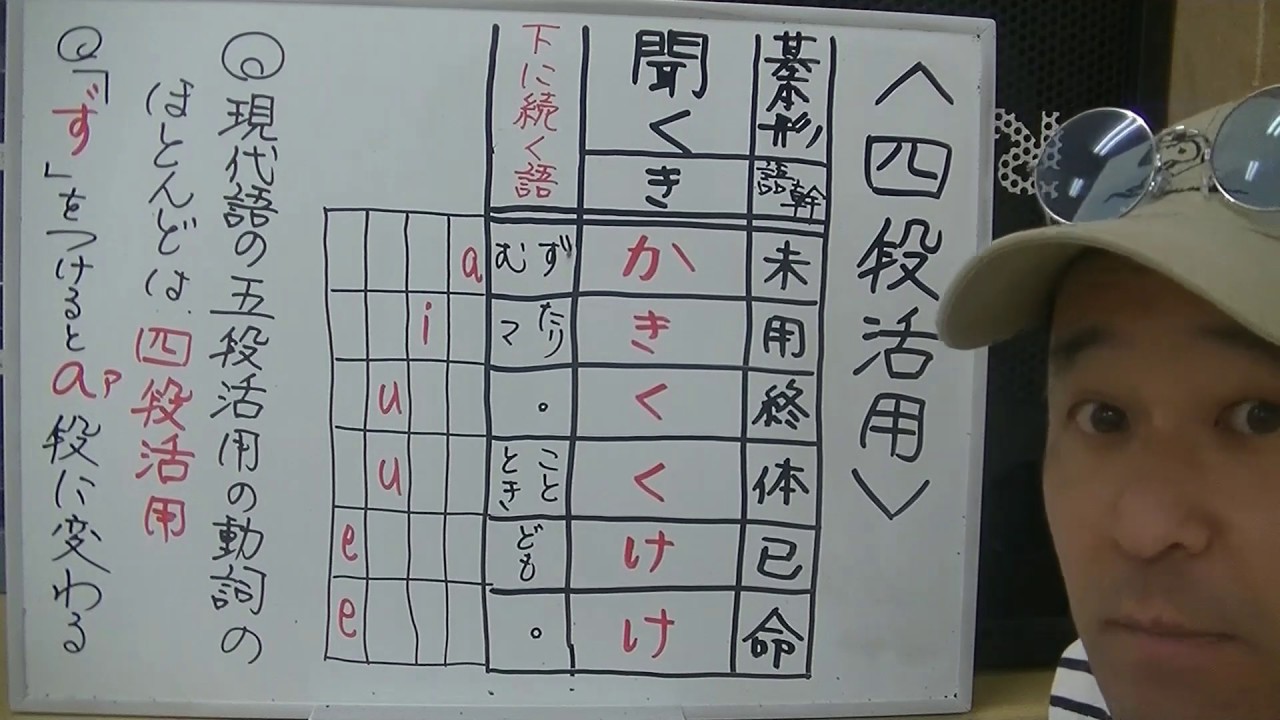 ＜四段活用＞
基本形
語幹
未
用
終
体
已
命
聞く
き
か
き
く
く
け
け
下に続く語
ず
む
たり
マ
。
こと
とき
ども
。
a
i
u
u
e
e
◎現代語の五段活用の動詞の
ほとんどは四段活用
◎「ず」をつけるとaア段に変わる